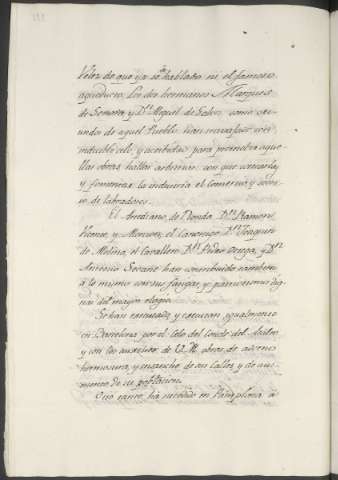 Velez de que ya se ha hablado en el famoso
aqueducto. Los dos hermanos Marques
de Sonora, y Dn. Miguel de Galvez como oriundos
de aquel Pueblo han trabajado con
indecible celo, y acertado para promober aquellas
obras hallar arbitrios con que costearlas,
y fomentar la industria el Comercio y socorro
de labradores.
El Arcediano de Ronda Dn. Ramon
Vicente, y Monzon, el Canonigo Dn. Joaquin
de Molina, el Cavallero Dn. Pedro Ortega, y Dn.
Antonio Serano han contribuido tambien
a lo mismo con sus fatigas, y parecermos dignos
del mayor elogio.
Se han executado, y executan igualmente
en Barcelona por el Celo del Conde del Asalto
y con los auxilios de V. M. obras de aseo
hermosura, y ensanche de sus Calles, y de aumento
de su poblacion.
Otro tanto ha sucedido en Pamplona a